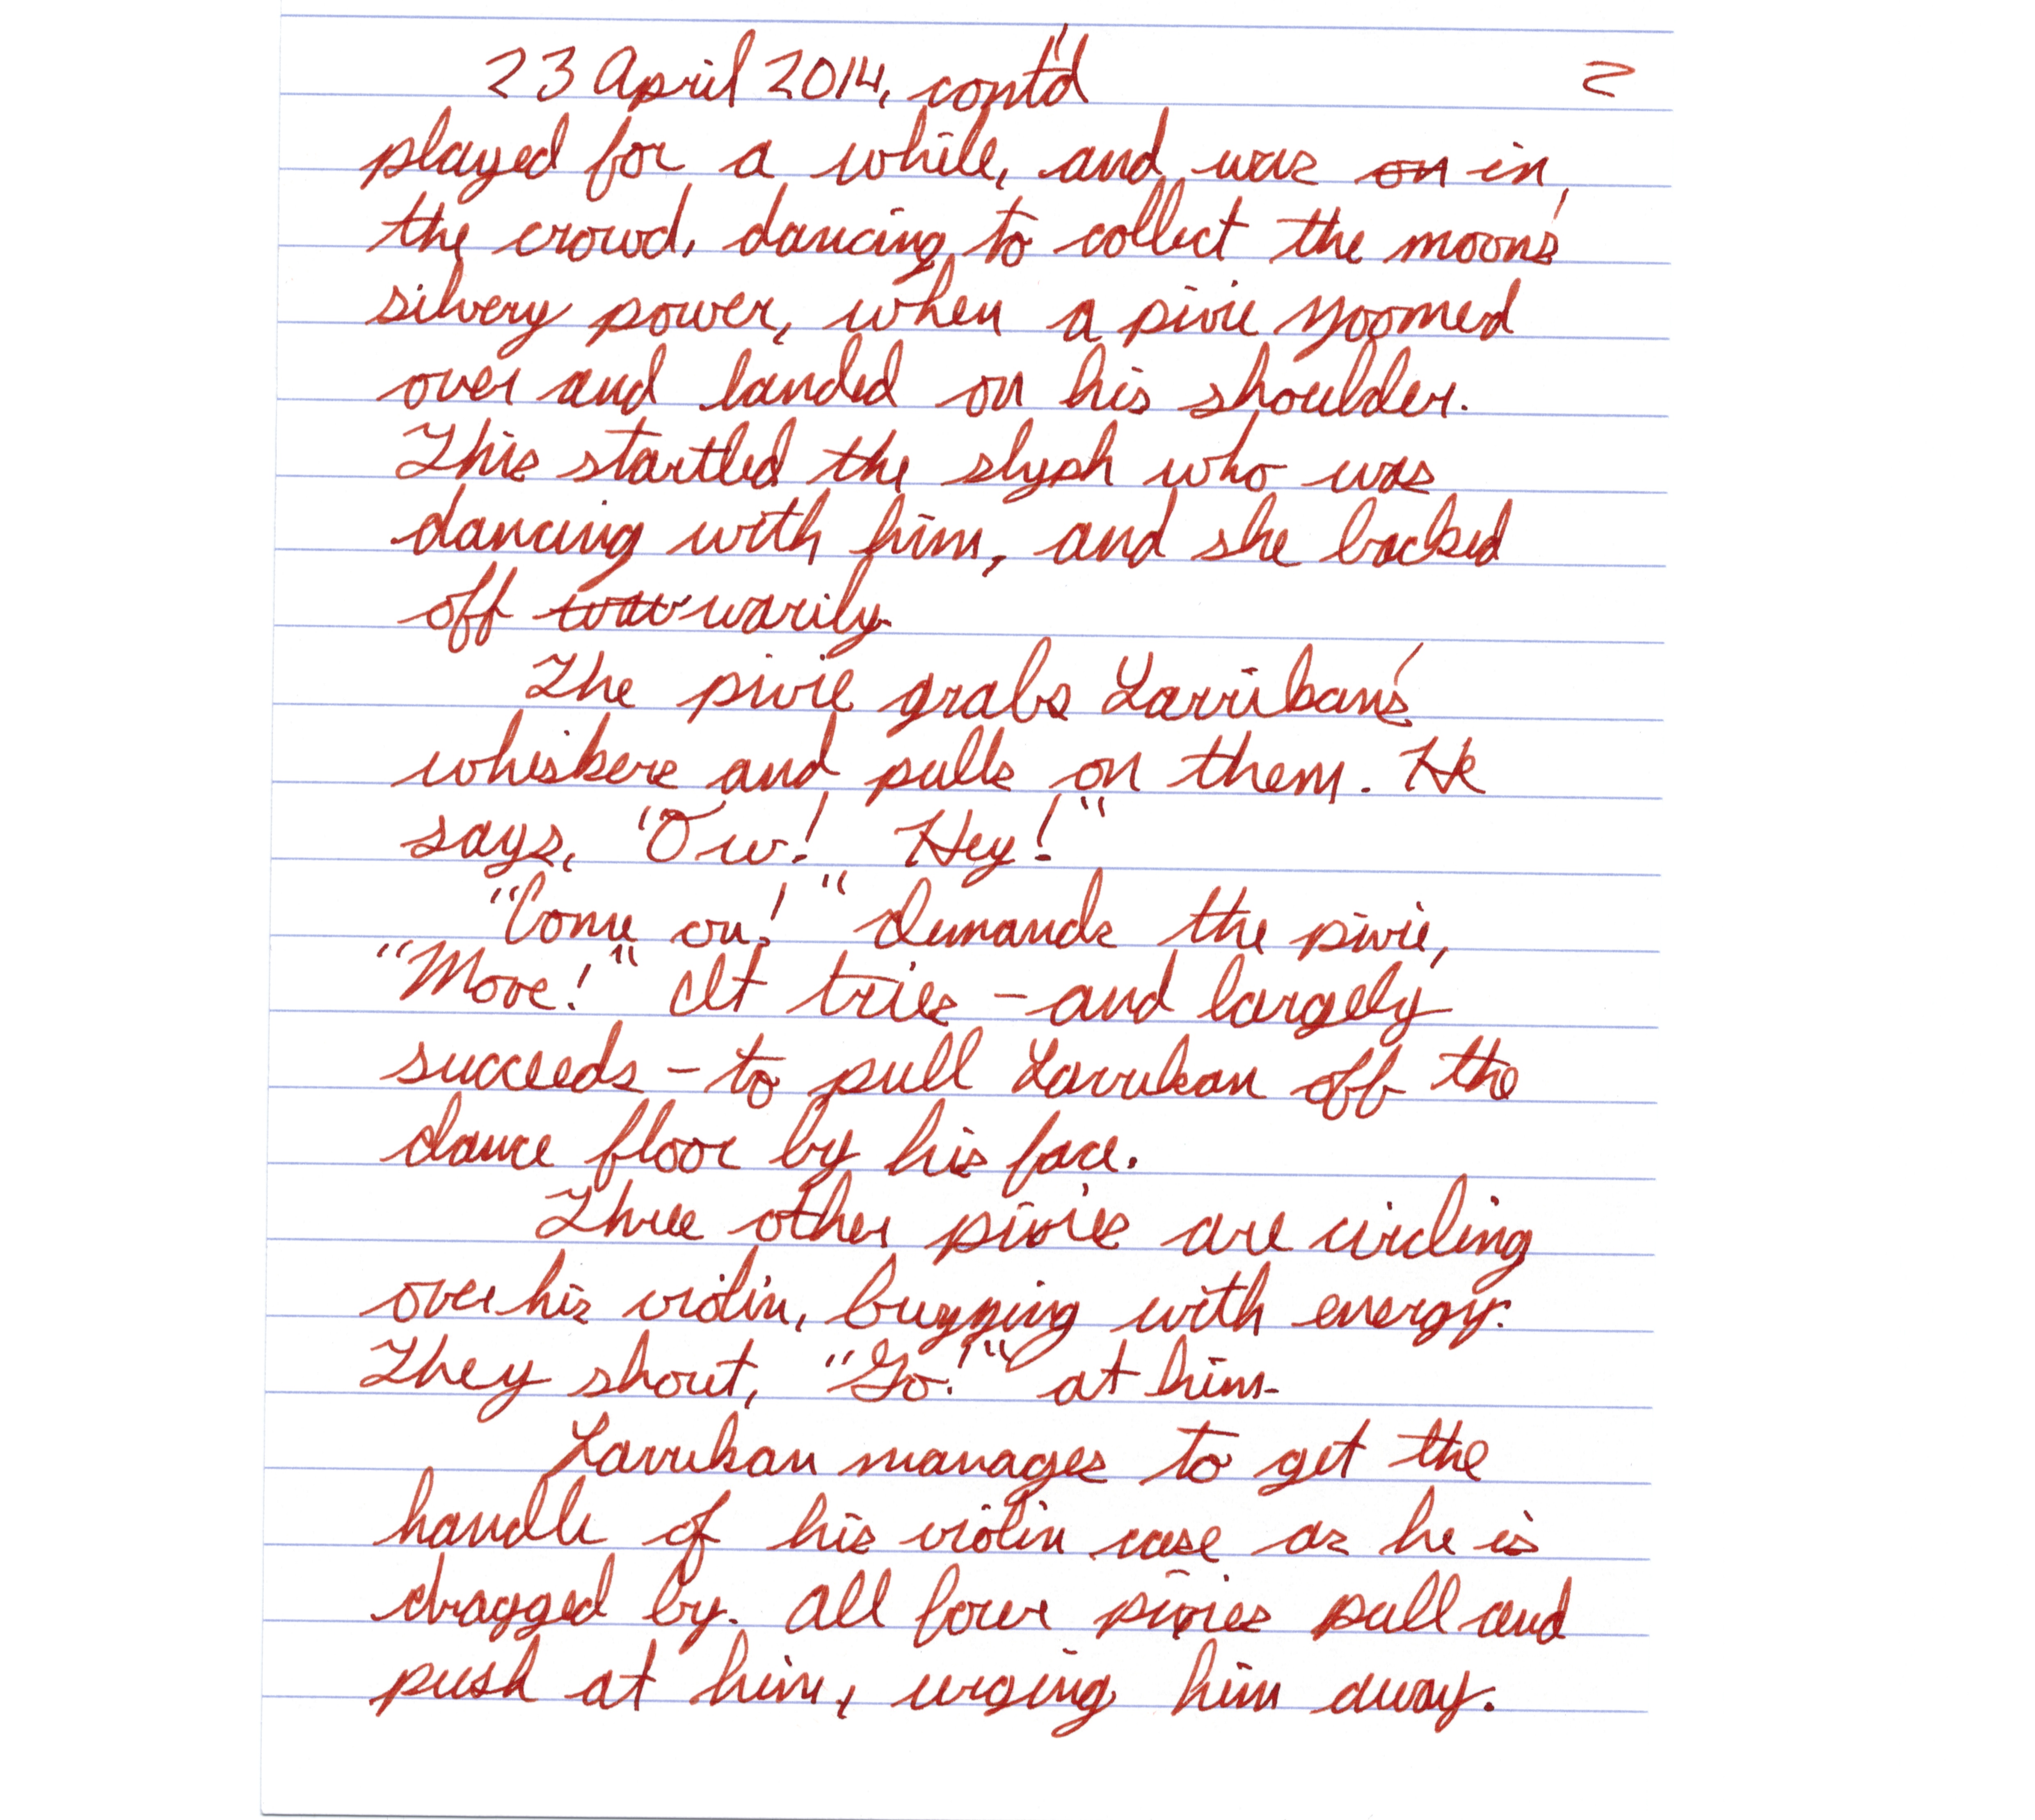 23 April 2014, cont'd 2
played for a while, and was on in
the crowd, dancing to collect the moon's
silvery power, when a pixie zoomed
over and landed on his shoulder.
This startled the slyph who was
dancing with him, and she backed
off warily.
The pixie grabs Larrikan's
whiskers and pulls on them. He
says, "Ow! Hey!"
"Come on!" demands the pixie,
"Move!" It tries – and largely
succeeds – to pull Larrikan off the
dance floor by his face.
Three other pixies are circling
over his violin, buzzing with energy.
They shout, "Go!" at him.
Larrikan manages to get the
handle of his violin case as he is
dragged by. All four pixies pull and
push at him, urging him away.